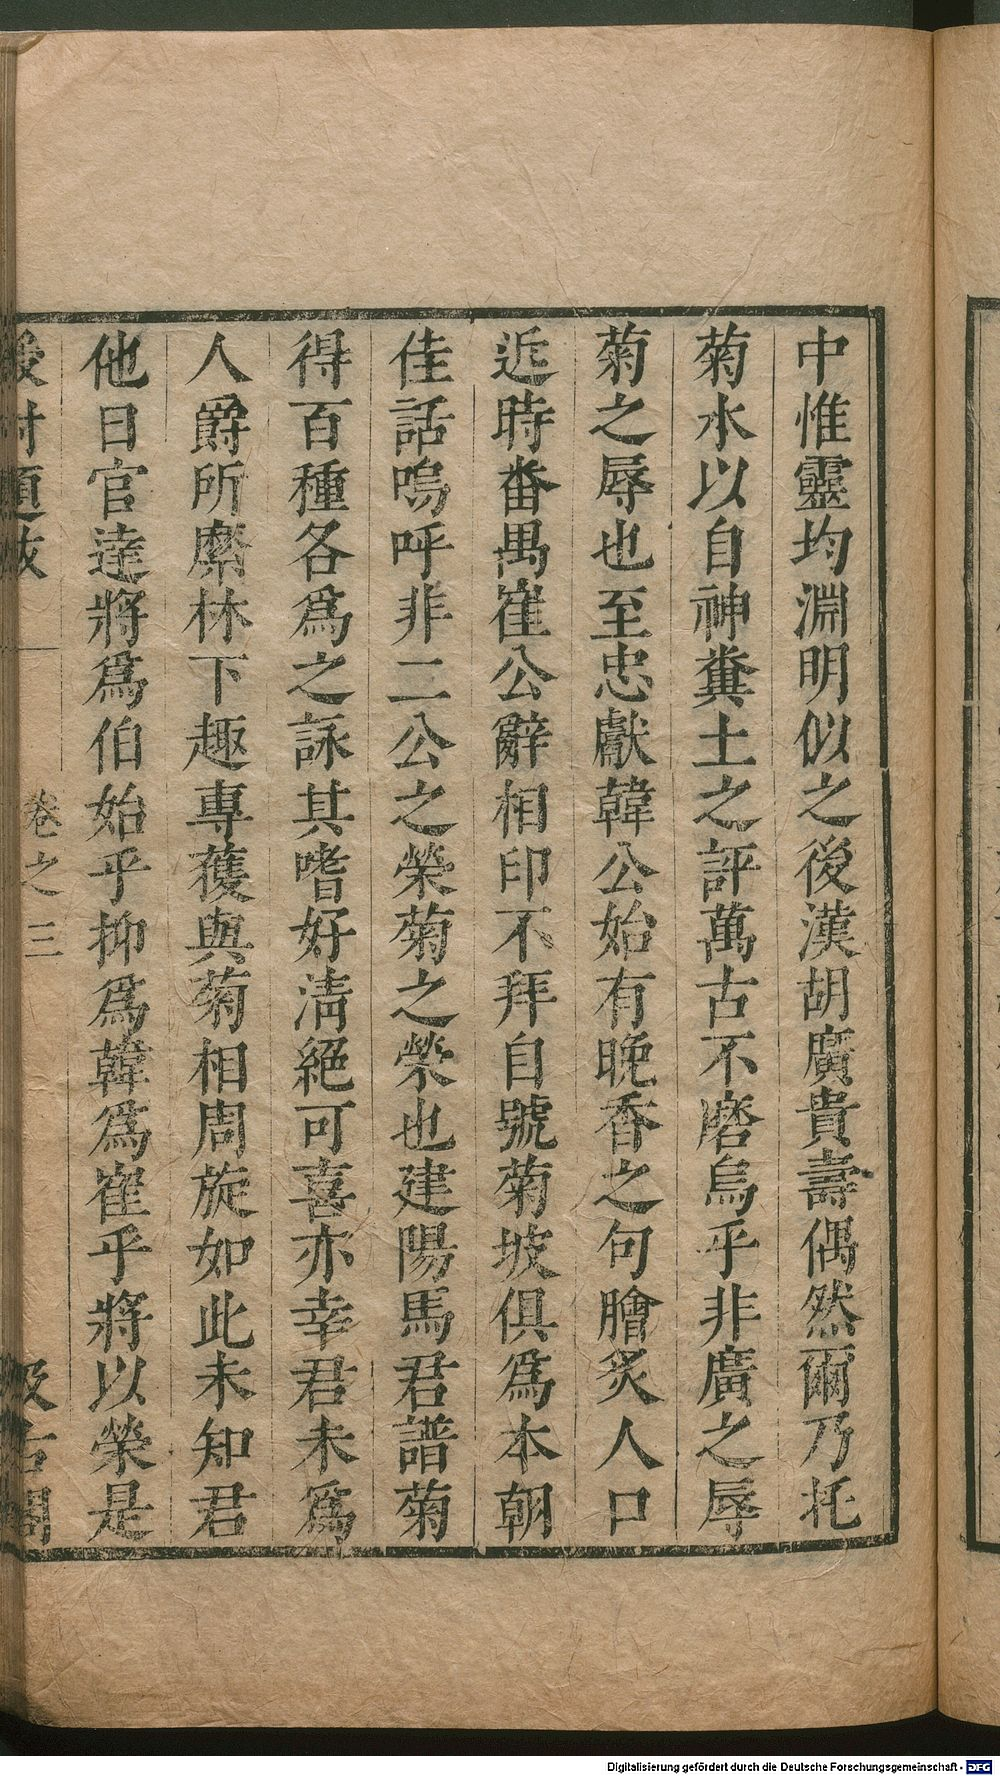 中惟靈均淵明似之後漢胡廣貴壽偶然爾乃托
菊水以自神糞土之評萬古不磨烏乎非廣之辱
菊之辱也至忠獻韓公始有晚香之句膾炙人口
近時番禺崔公辭相印不拜自號菊坡俱爲本朝
佳話嗚呼非二公之榮菊之榮也建陽馬君譜菊
得百種各爲之詠其嗜好清絕可喜亦幸君未爲
人爵所縻林下趣專獲與菊相周旋如此未知君
他日官達將爲伯始乎抑爲韓爲崔乎將以榮是
後村題跋 卷之三 汲古閣
Digitalisierung gefördert durch die Deutsche Forschungsgemeinschaft - DFG